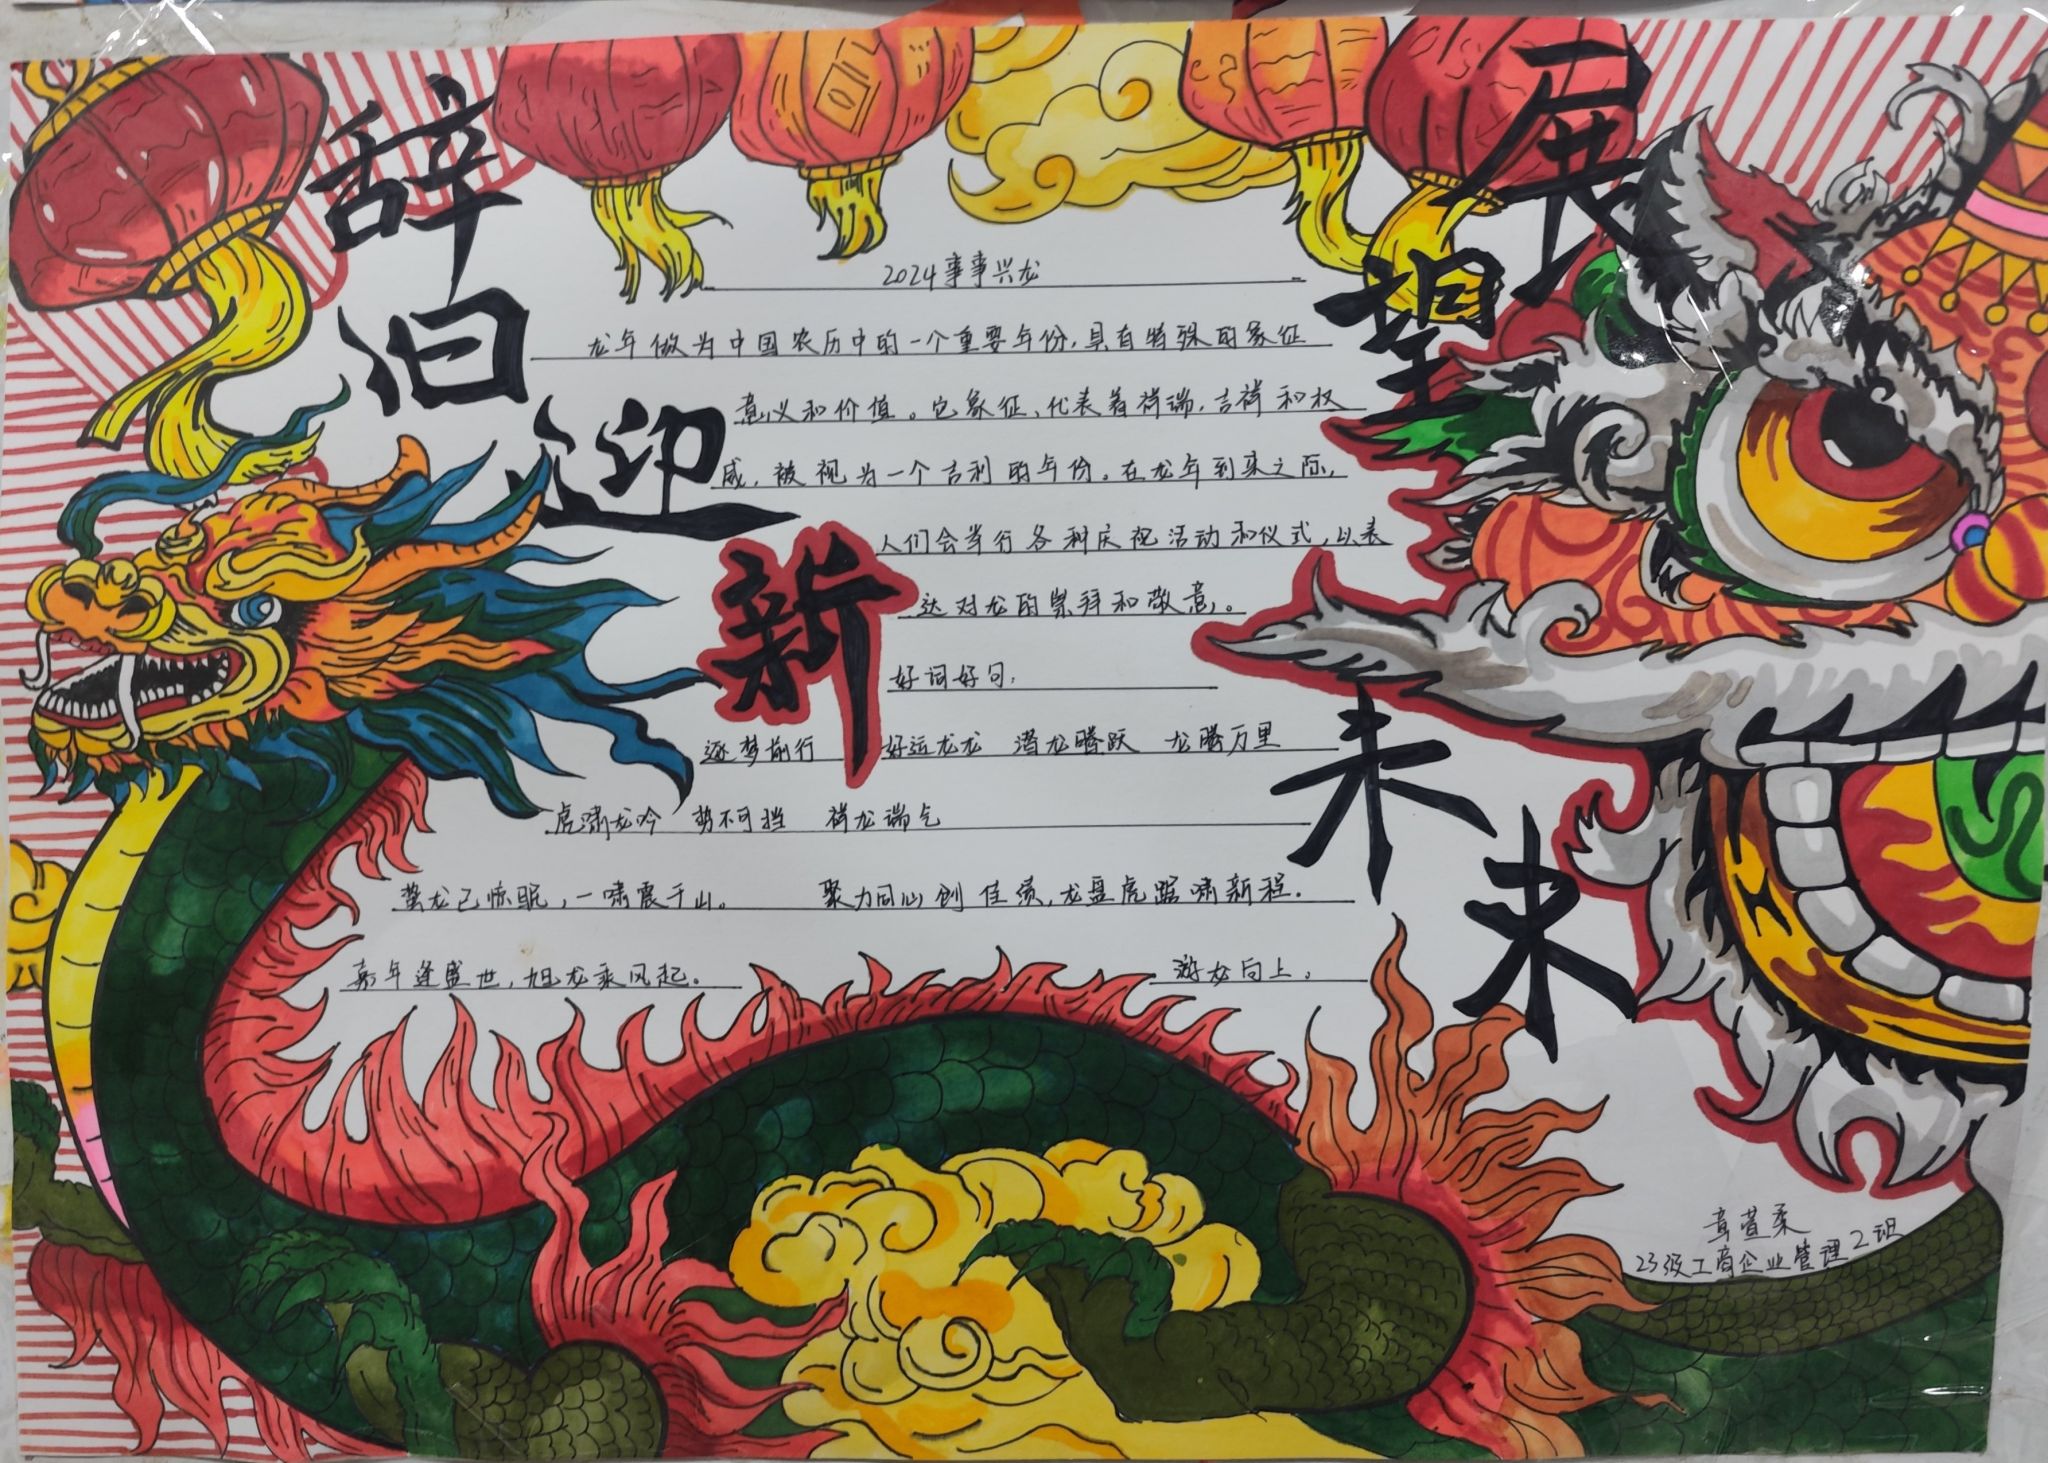 辞旧迎新
展望未来
2024事事兴龙
龙年做为中国农历中的一个重要年份,具有特殊的象征
意义和价值。它象征、代表着祥瑞,吉祥和权
威,被视为一个吉利的年份。在龙年到来之际,
人们会举行各种庆祝活动和仪式,以表
达对龙的崇拜和敬意。
好词好句:
逐梦前行 好运龙龙 潜龙腾跃 龙腾万里
虎啸龙吟 势不可挡 祥龙瑞气
蛰龙已惊眠,一啸震千山。 聚力同心创佳绩,龙盘虎踞啸新程.
嘉年逢盛世,旭龙乘风起。 游龙向上。
章萱柔
23级工商企业管理2班